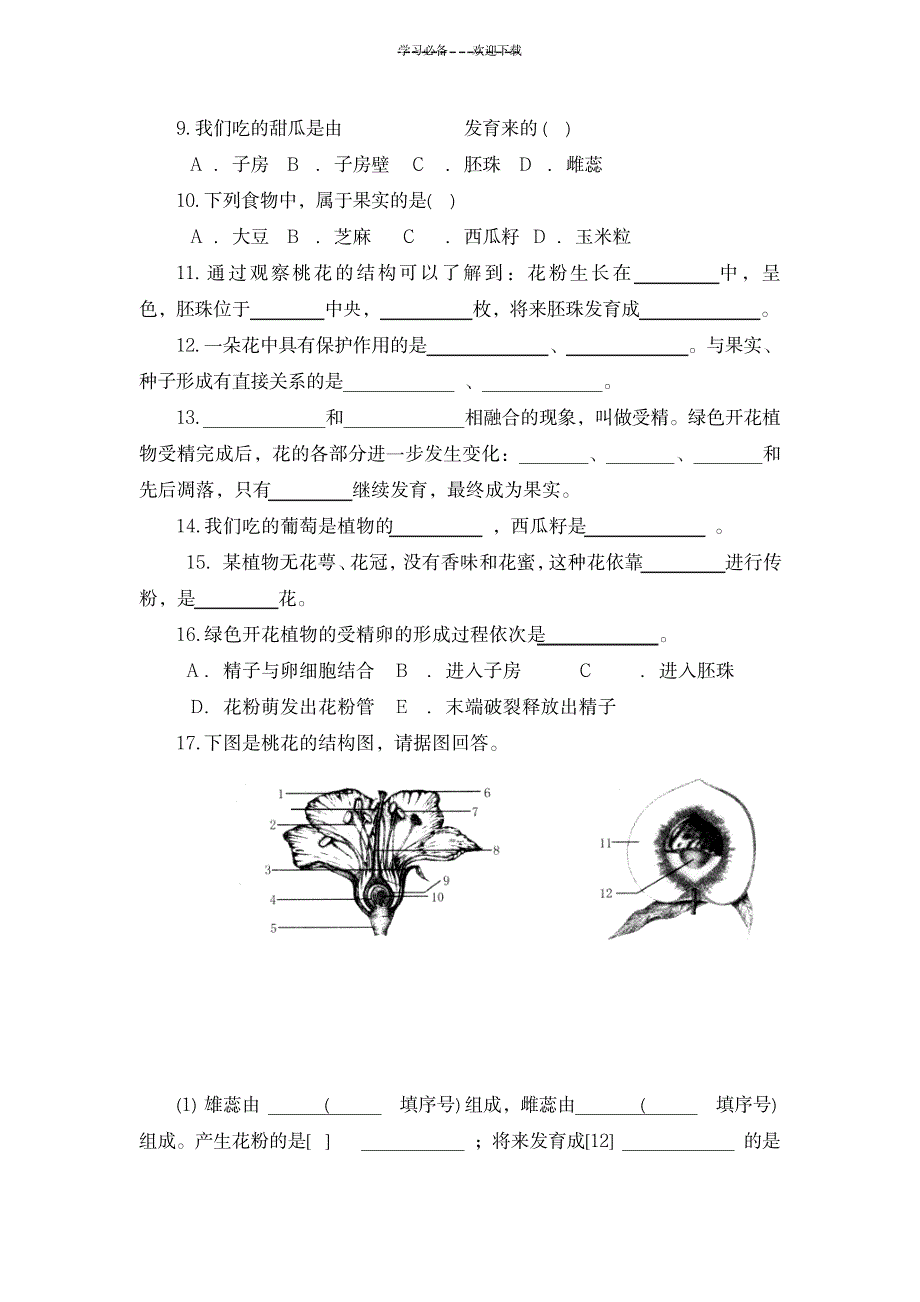 学习必备---欢迎下载
9.我们吃的甜瓜是由 发育来的( )
A .子房 B .子房壁 C .胚珠 D .雌蕊
10.下列食物中，属于果实的是( )
A .大豆 B .芝麻 C .西瓜籽 D .玉米粒
11.通过观察桃花的结构可以了解到：花粉生长在________中，呈
色，胚珠位于_______中央，_________枚，将来胚珠发育成____________。
12.一朵花中具有保护作用的是____________、____________。与果实、
种子形成有直接关系的是___________ 、____________。
13. ____________和____________相融合的现象，叫做受精。绿色开花植
物受精完成后，花的各部分进一步发生变化：_______、_______、_______和
先后凋落，只有________继续发育，最终成为果实。
14.我们吃的葡萄是植物的_________ ，西瓜籽是____________ 。
15. 某植物无花萼、花冠，没有香味和花蜜，这种花依靠________进行传
粉，是________花。
16.绿色开花植物的受精卵的形成过程依次是____________。
A .精子与卵细胞结合 B .进入子房 C .进入胚珠
D. 花粉萌发出花粉管 E .末端破裂释放出精子
17.下图是桃花的结构图，请据图回答。
1
2
3
4
5
6
7
8
9
10
11
12
(1) 雄蕊由 ______(_____ 填序号)组成，雌蕊由______(_____ 填序号)
组成。产生花粉的是[ ] __________ ；将来发育成[12] ___________ 的是